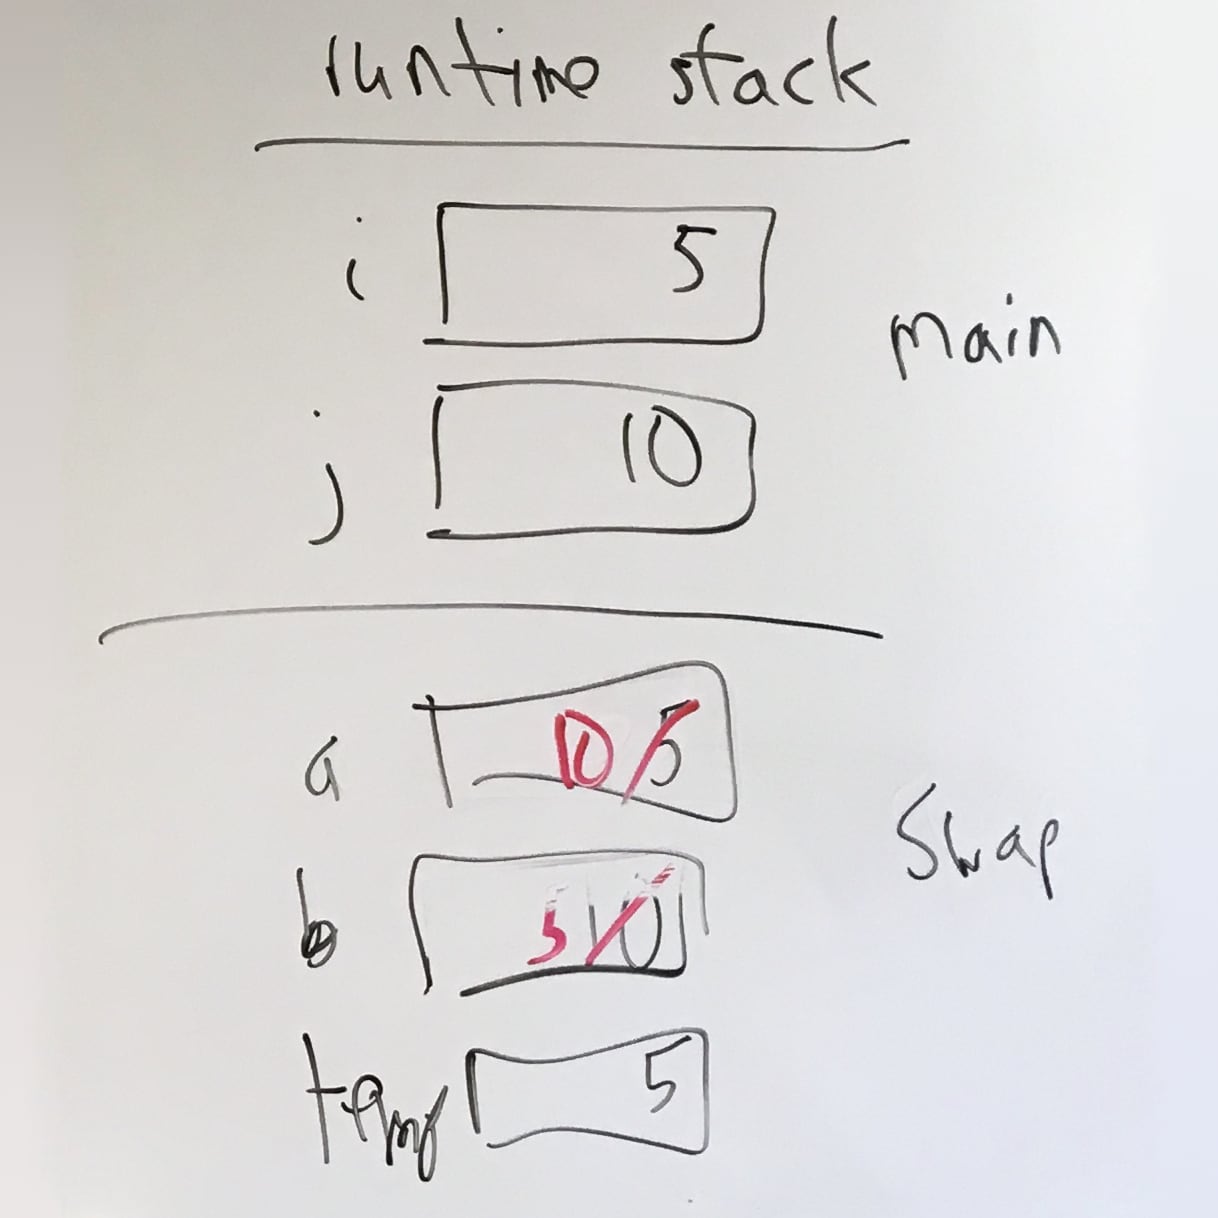 runtime stack
i 5
main
j 10
a 10 5
swap
b 5 10
temp 5